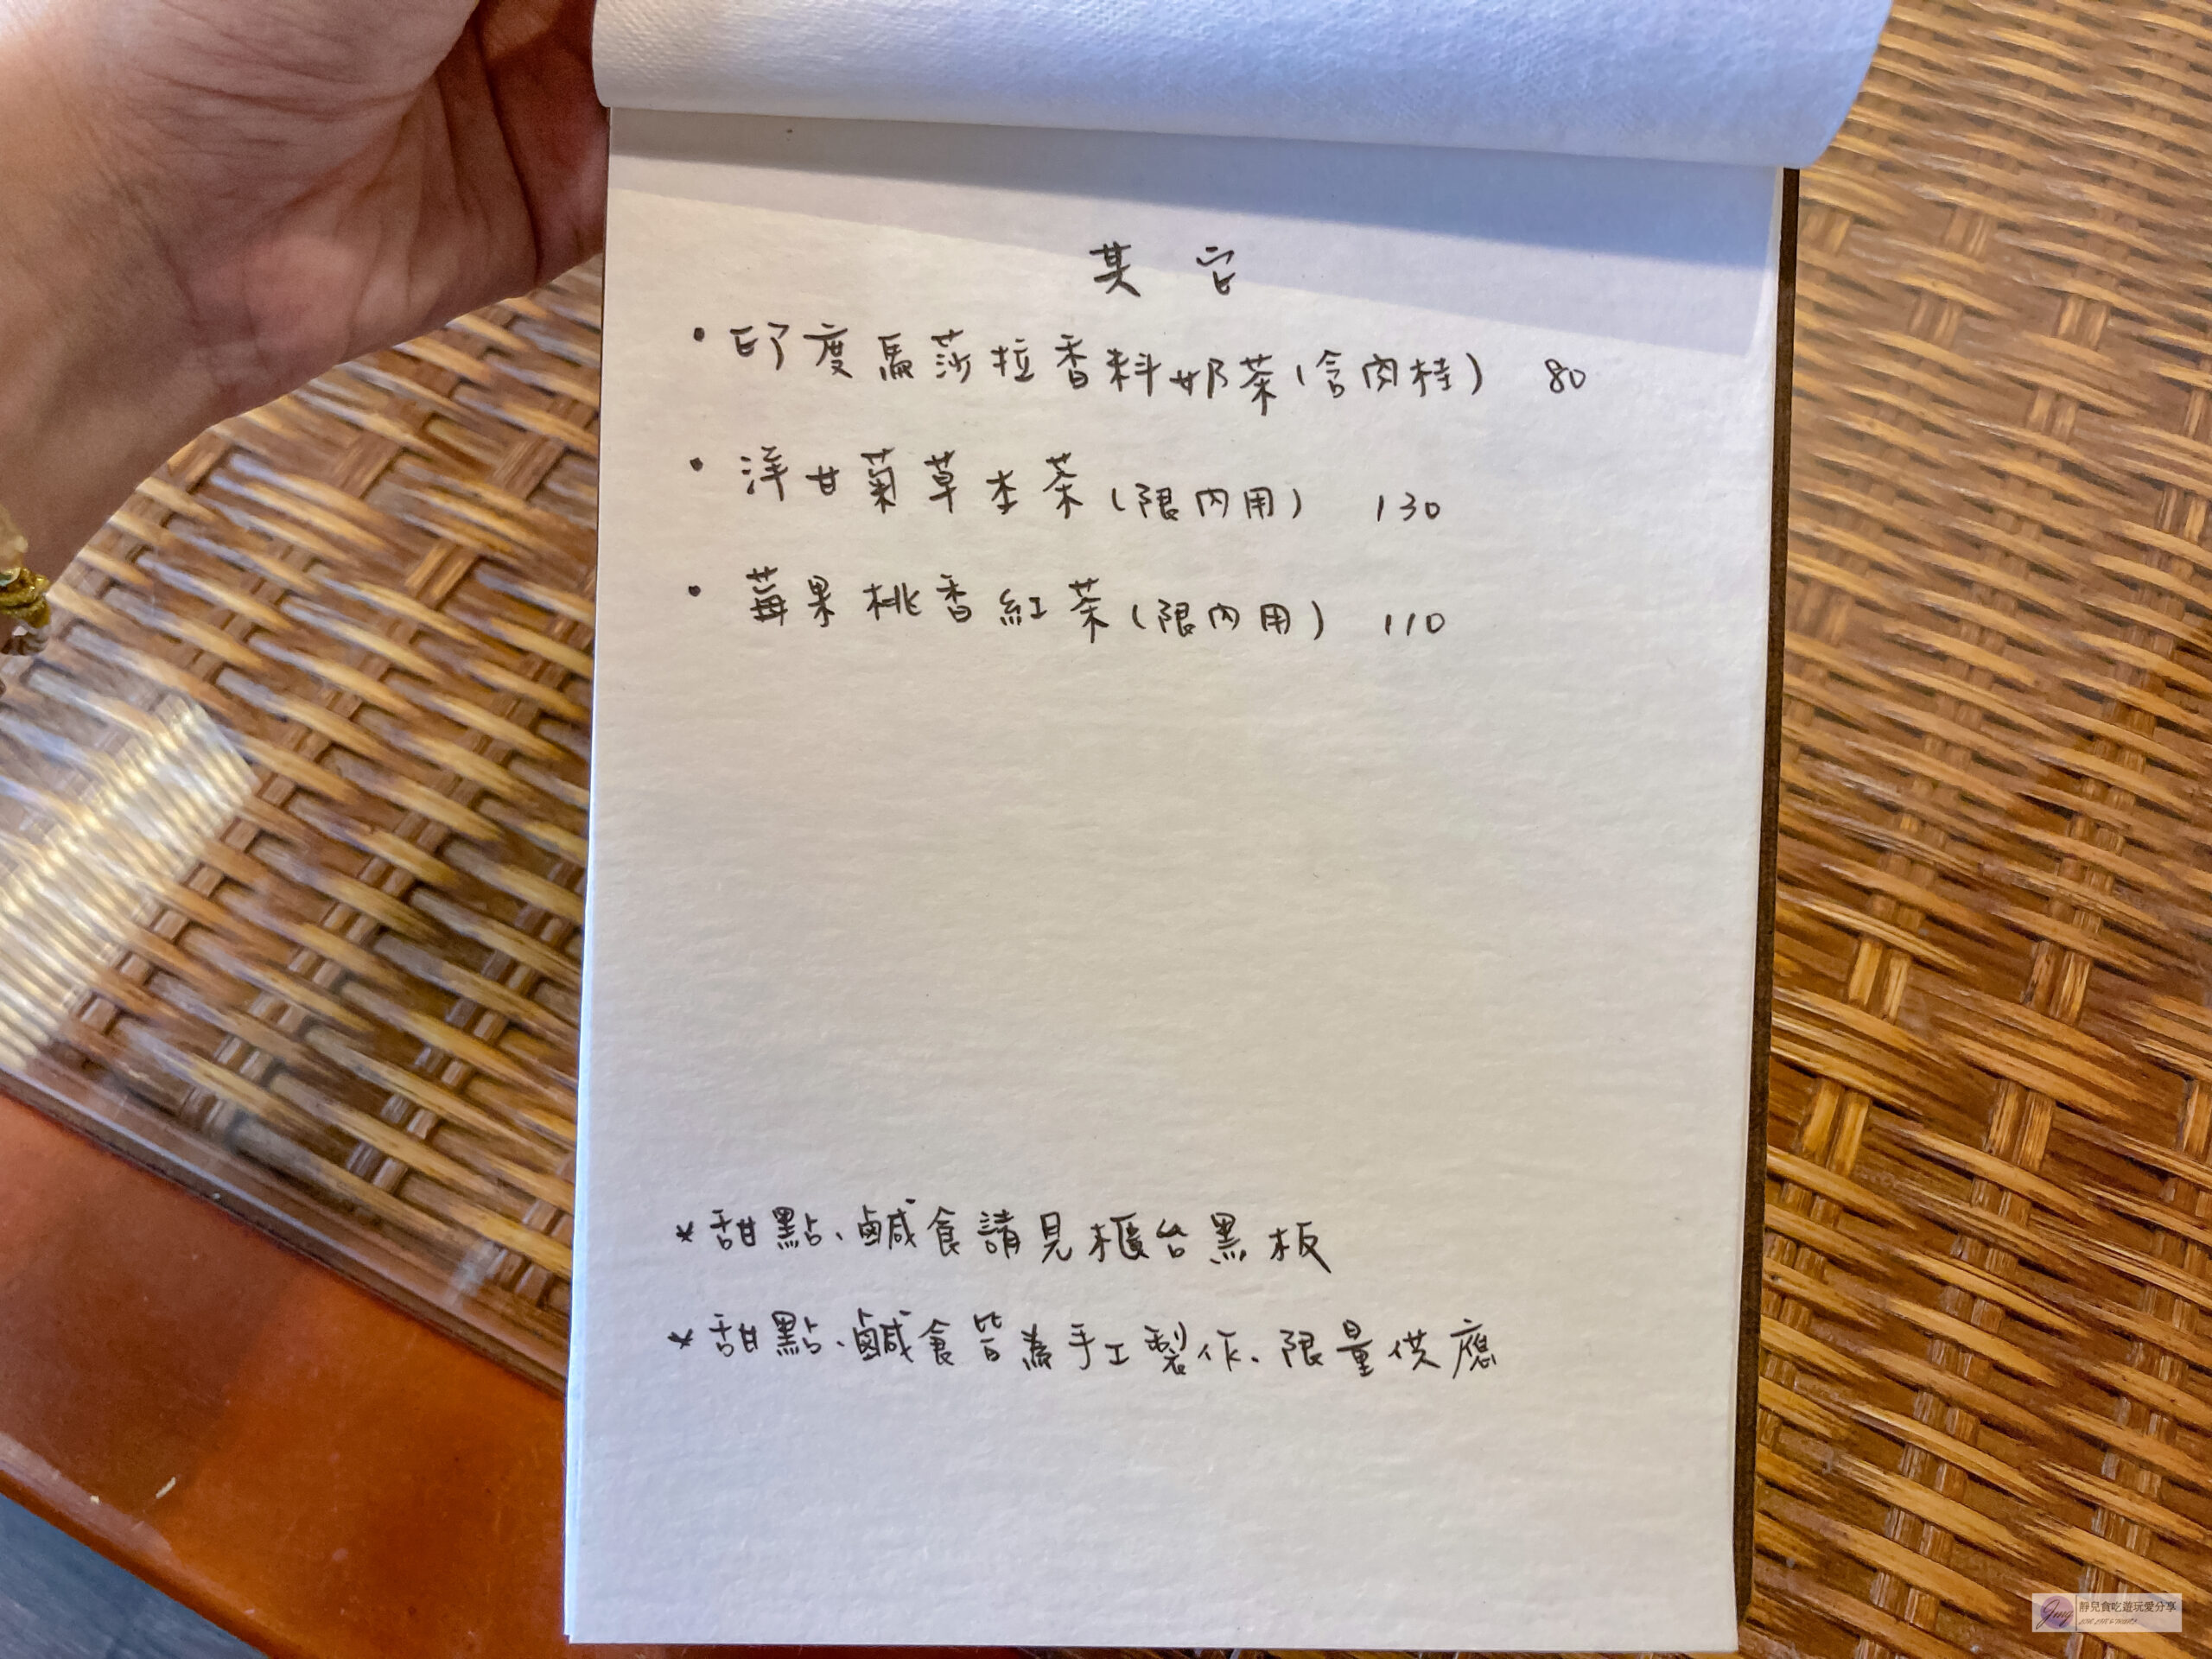 其它
・印度馬莎拉香料奶茶(含肉桂) 80
・洋甘菊草本茶(限內用) 130
・莓果桃香紅茶(限內用) 110
*甜點、鹹食請見櫃台黑板
*甜點、鹹食皆為手工製作、限量供應
Jing 靜兒貪吃遊玩愛分享